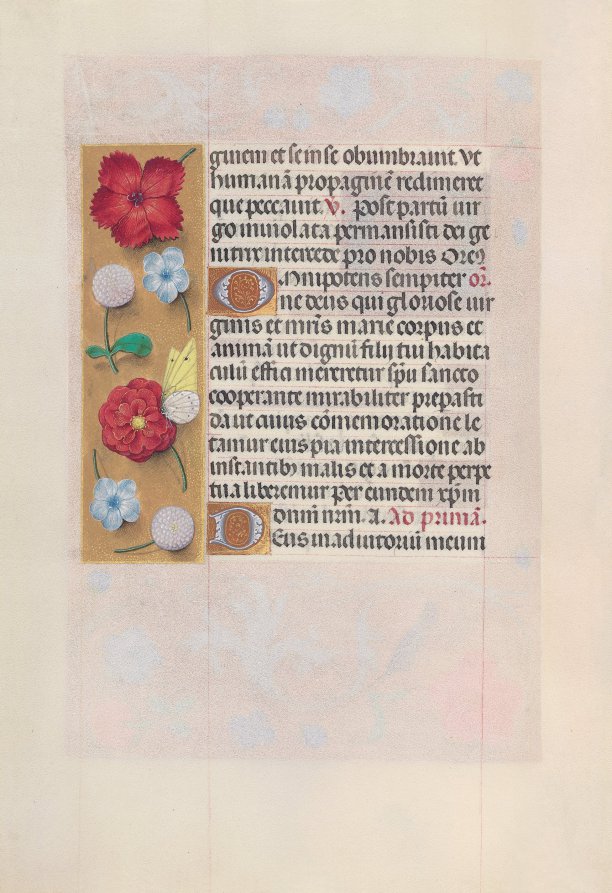 guinem et se in se obumbraunt. Vt
humanā propaginē redimeret
que peccaunt. V. Post partū uir
go inuiolata permansisti dei ge
nitrix intercede pro nobis Orem9
Omnipotens sempiter or̄.
ne deus qui gloriose uir
ginis et mr̄is marie corpus et
animā ut dignū filii tui habita
culū effici mereretur sp̄u sancto
cooperante mirabiliter preparasti
da ut cuius cōmemoratione le
tamur eius pia intercessione ab
instantib9 malis et a morte perpe
tua liberemur Per eundem xp̄m
domī nr̄m. A. Ad primā.
Deus in adiutoriū meum